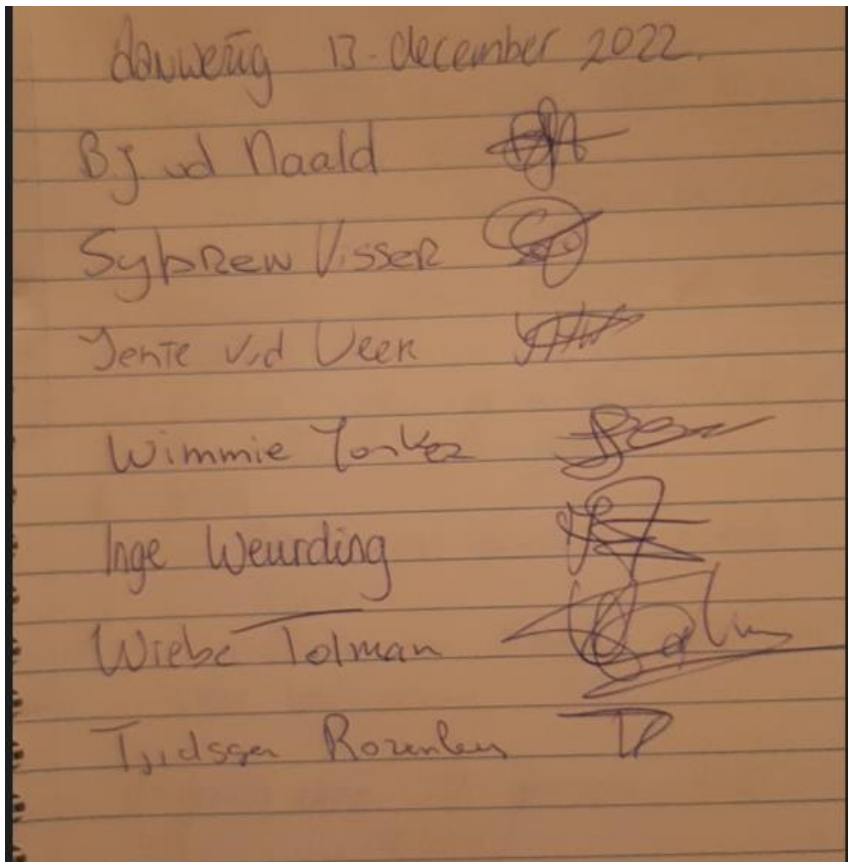 aanwezig 13-december 2022.
BJ vd Naald
Sybren Visser
Jente v.d Veen
Wimmie Jonker
Inge Weurding
Wiebe Tolman
Tjidsger